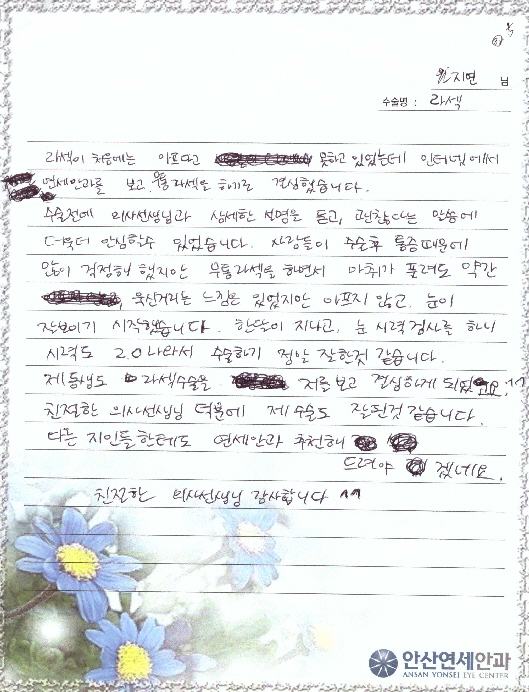 지연 님
수술명 : 라섹
라섹이 처음에는 아프다고 못하고 있었는데 인터넷에서
연세안과를 보고, 무통라섹을 하기로 결심했습니다.
수술전에 의사선생님과 상세한 설명을 듣고, 괜찮다는 말씀에
더욱더 안심할수 있었습니다. 사람들이 수술후 통증때문에
많이 걱정해 했지만 무통라섹을 하면서 마취가 풀려도 약간
욱신거리는 느낌은 있었지만 아프지 않고, 눈이
잘보이기 시작했습니다. 한뚝이 지나고, 눈 시력검사를 하니
시력도 2.0 나와서 수술하기 정말 잘한것 같습니다.
제 동생도 라섹수술을 저를보고 결심하게 되었고요. ^^
친절한 의사선생님 덕분에 제 수술도 잘된것 같습니다.
다른 지인들한테도 연세안과 추천해
드려야 겠네요.
친절한 의사선생님 감사합니다 ^^
안산연세안과
ANSAN YONSEI EYE CENTER